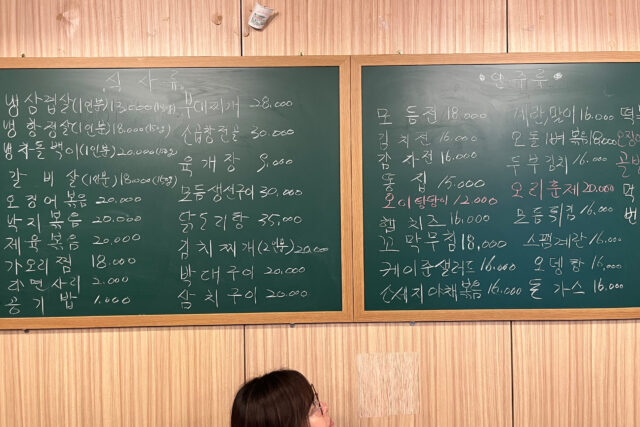 식사류
냉삼겹살(1인분)13,000(150g)
냉항정살(1인분)18,000(150g)
냉차돌백이(1인분)20,000(150g)
갈비살(1인분)18,000(150g)
오징어볶음 20,000
낙지볶음 20,000
제육볶음 20,000
가오리찜 18,000
라면사리 2,000
공기밥 1,000
부대찌개 28,000
소곱창전골 30,000
육개장 9,000
모듬생선구이 30,000
닭도리탕 35,000
김치찌개(2인분)20,000
박대구이 20,000
삼치구이 20,000
안주류
모듬전 18,000
김치전 16,000
감자전 16,000
똥집 15,000
오이탕탕이 12,000
햄치즈 16,000
꼬막무침 18,000
케이준샐러드 16,000
소세지야채볶음 16,000
계란말이 16,000
오돌뼈볶음 18,000
두부김치 16,000
오리훈제 20,000
모듬튀김 16,000
스팸계란 16,000
오뎅탕 16,000
돈가스 16,000